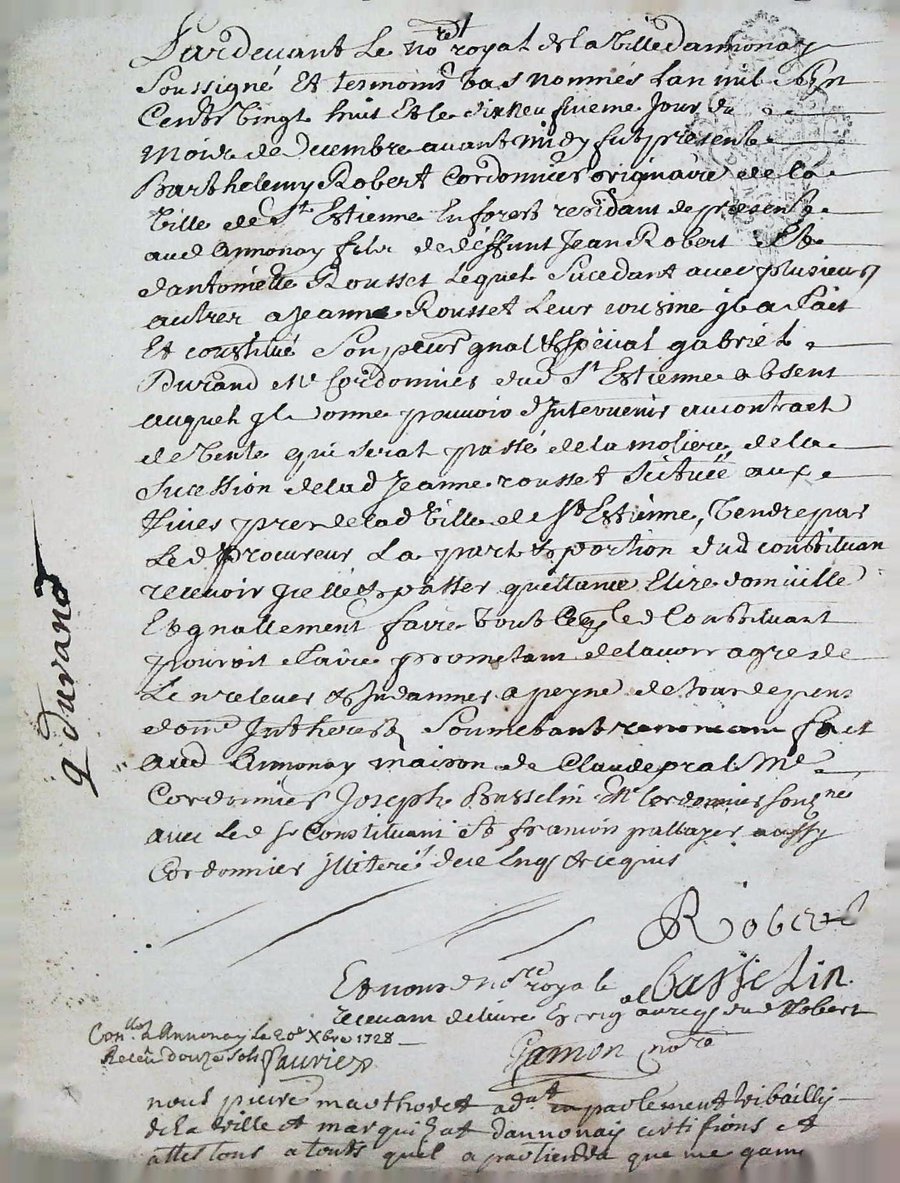 Pardevant Le no.re royal de la Ville dannonay
Soussigné Et tesmoins bas nommés Lan mil Sept
Cents vingt huit Et le dixneufvieme Jour du
Mois de Decembre avant midy fut present
Barthelemy Robert Cordonnier originaire de la
Ville de St Estienne En forest residant de present
aud Annonay fils de deffunt Jean Robert Et
dantoinette Rousset Lequel Sucedant avec plusieurs
autres a Jeanne Rousset Leur cousine jl a fait
Et constitué Son peur gnal & spécial gabriel
Durand Me Cordonnier dud St Estienne absent
auquel jl donne pouvoir d'Intervenir au contract
de Vente qui serat passé de la moliere de la
Sucession de lad Jeanne rousset Située aux
Rives pres de lad Ville de St Estienne, Vendre par
Led procureur La part & portion dud constituan
recevoir jcelle & passer quittance Elire domicille
Et gnallement faire tout Led Constituant
pouroit faire prometant de lavoir agreable
Le n relever & Indamner a peyne de tour depens
dom Inthérests Soumetant renoncant fait
aud Annonay maison de Claude prat Me
Cordonnier Joseph Basselin Me Cordonnier sousnes
avec Led Sr Constituant Et francois aussy
Cordonnier jlliteré de ce Enqs & requis
Robert
Basselin
Et nous d nore royal le
recevant delivré Exrig au reqs dud Robert
Conllé a Annonay le 20e Xbre 1728
Receu douze sols
Gamon nore
nous pierre adat en parlement vibailly
de la ville et marquisat dannonay certifions et
attestons a touts quil apartiendra que me gamon
g Durand